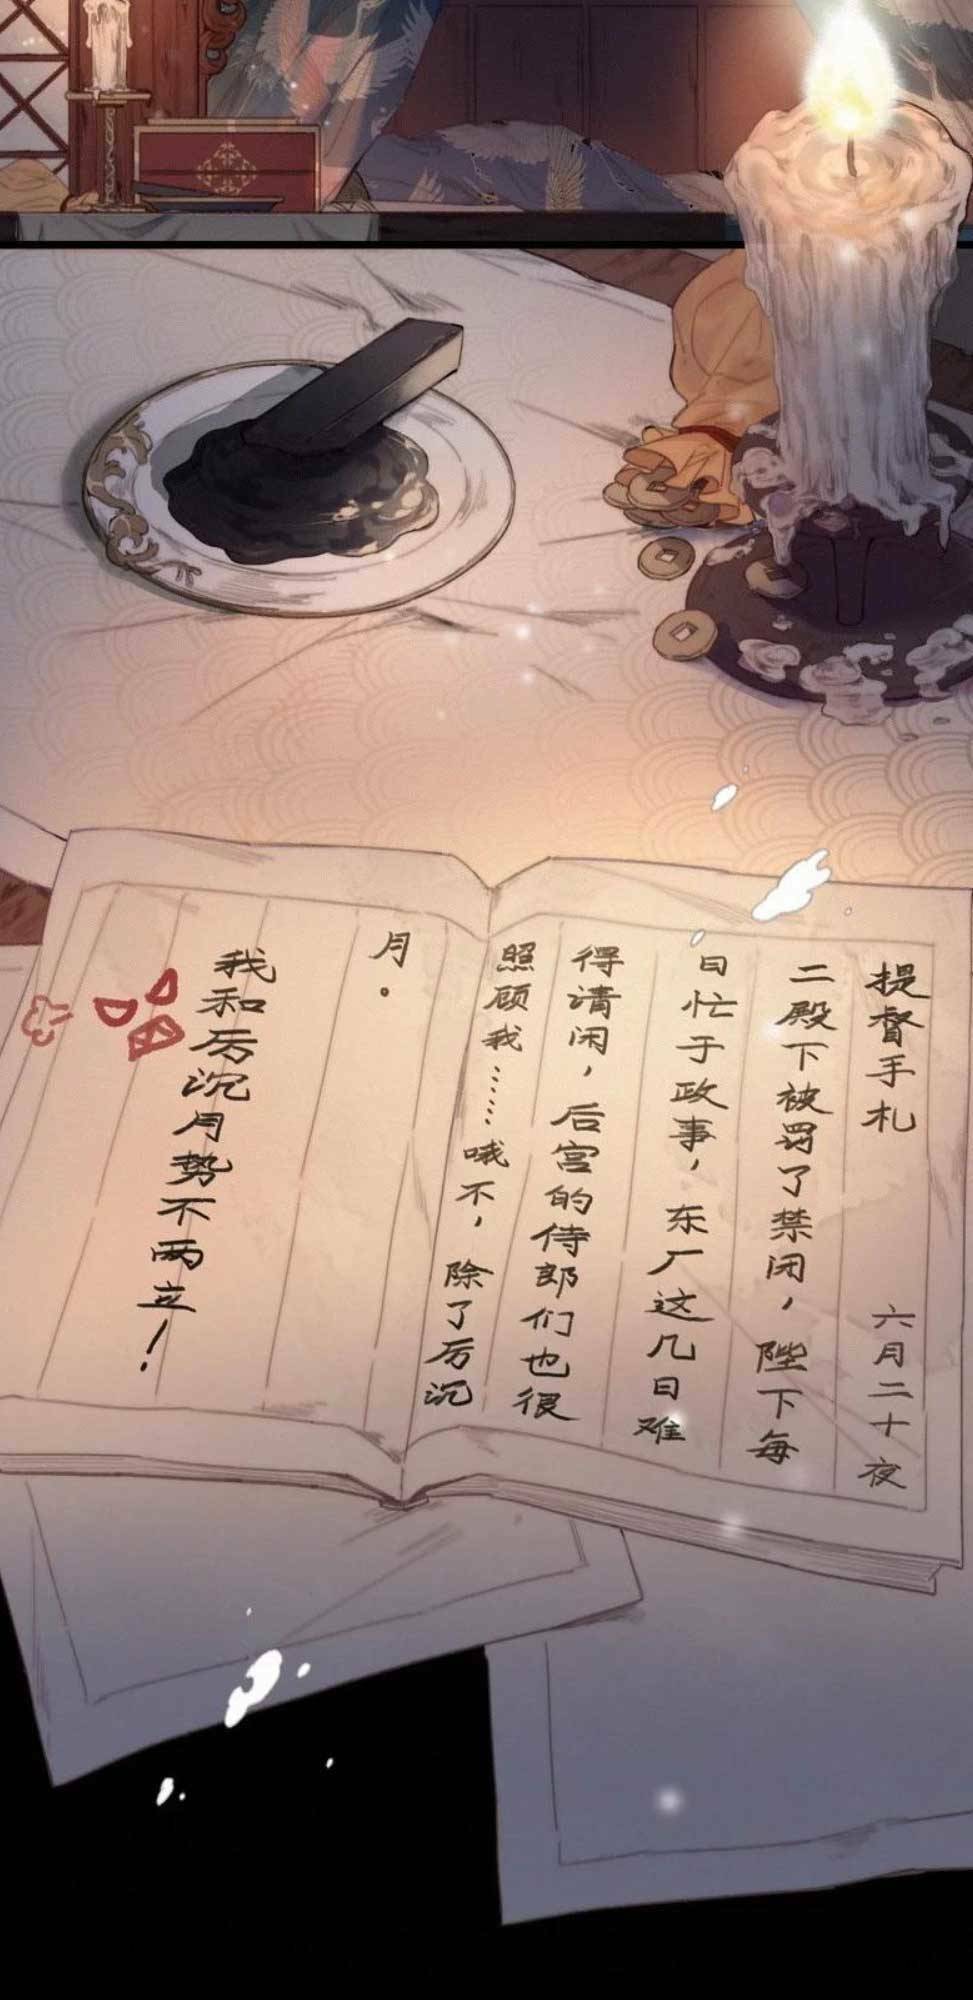 提督手札 六月二十夜
二殿下被罚了禁闭，陛下每
日忙于政事，东厂这几日难
得清闲，后宫的侍郎们也很
照顾我……哦不，除了厉沉
月。
我和厉沉月势不两立！